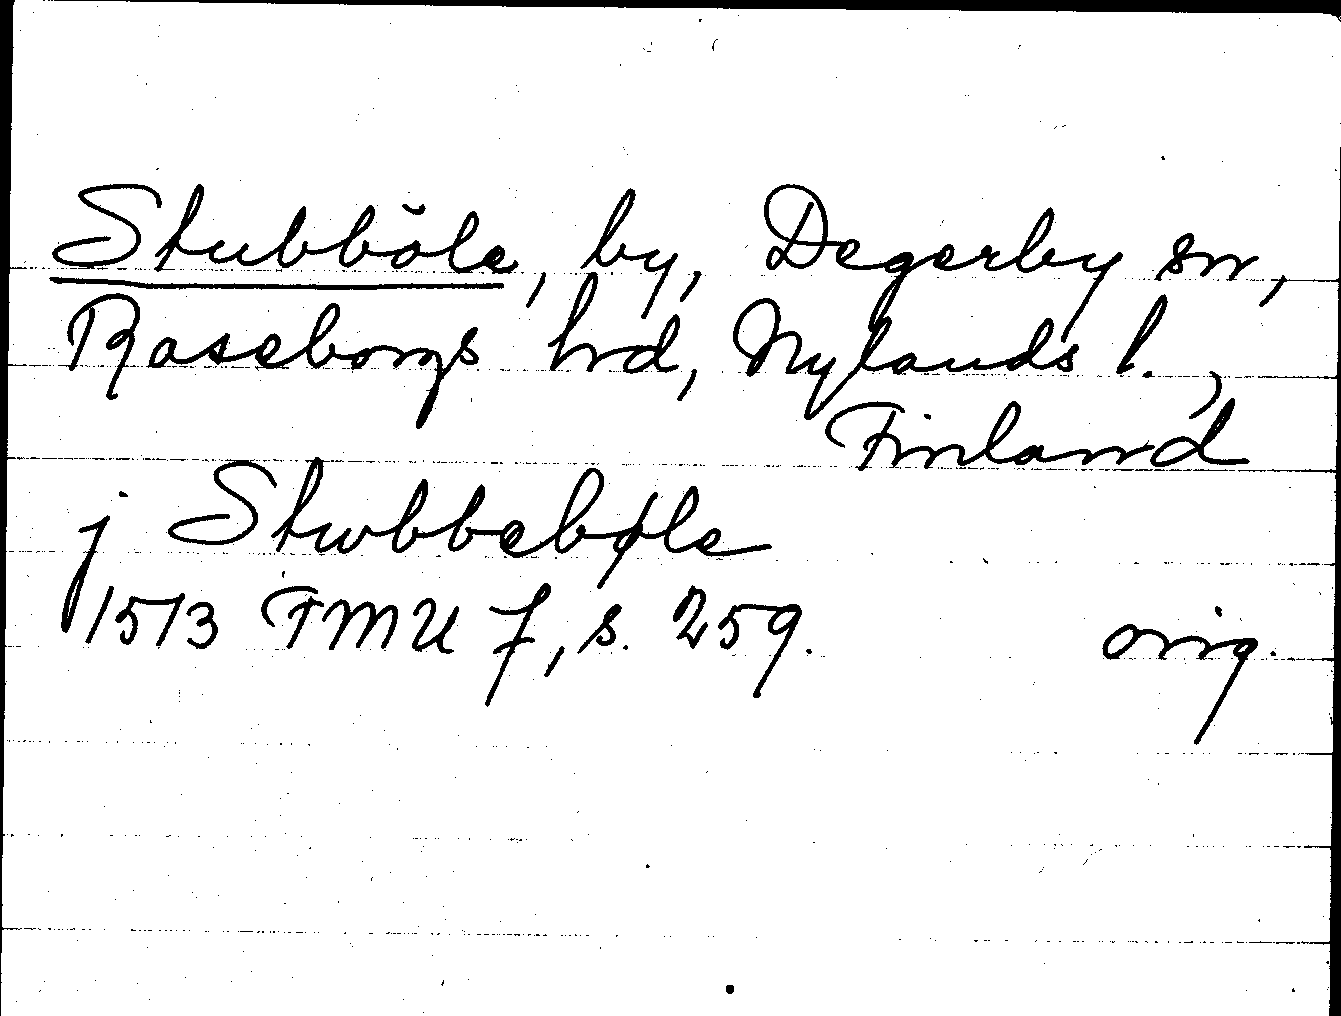 Stubböle, by, Degerby sn,
Raseborgs hrd, Nylands l.,
Finland
j Stwbbebøle
1513 FMU 7, s. 259. orig.